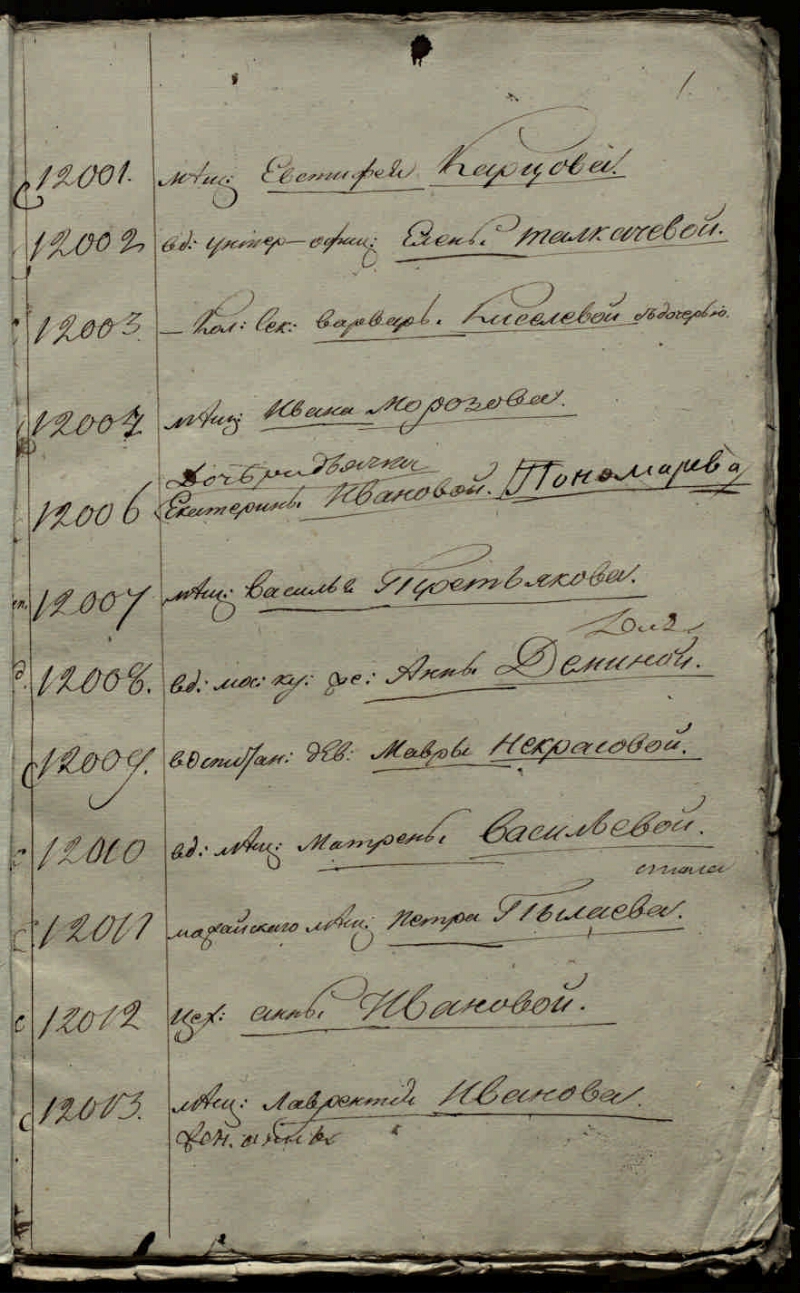 1
12001. мѣщ: Евстифея Карцова.
12002 вд: унтер–офиц: Елены Талкачевой.
12003. – Кол: Сек: Варвары Киселевой съ дочерью.
12004 мѣщ: Ивана Морозова.
Дочь
12006 Екатерины Ивановой. Пономарева
12007 мѣщ: Василья Третьякова.
12008. вд: мос: ку: же: Анны Деминой.
12009. воспитан: дѣв: Мавры Некрасовой.
12010 вд: мѣщ: Матрены Васильевой.
12011 мажайскаго мѣщ: Петра Пылаева.
12012 цех: анны Ивановой.
12013. мѣщ: Лаврентия Иванова.